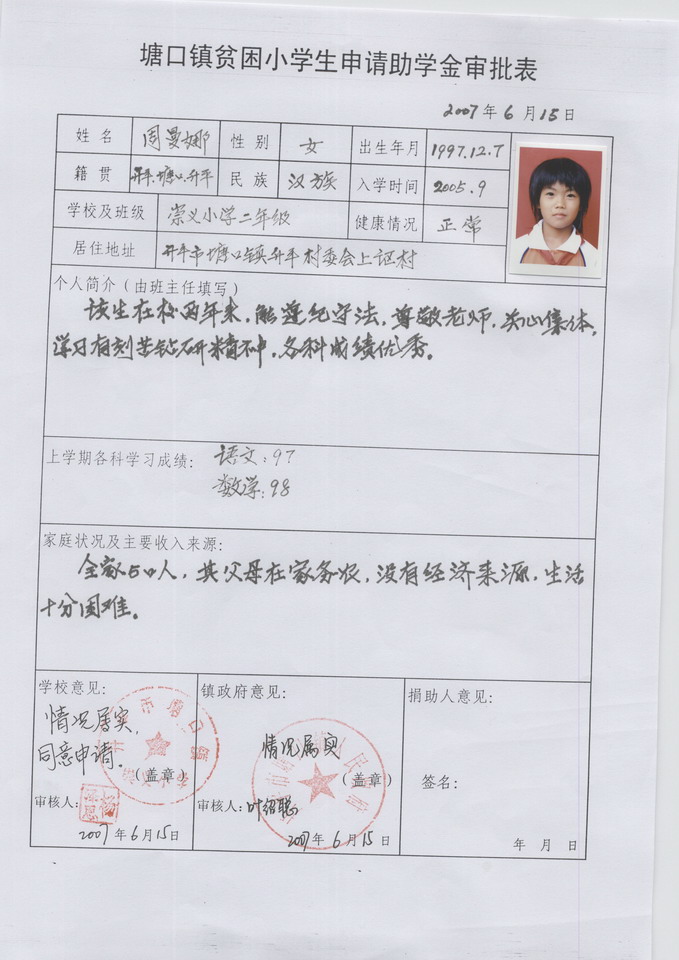 塘口镇贫困小学生申请助学金审批表
2007年6月15日
姓名 周曼娜 性别 女 出生年月 1997.12.7
籍贯 开平.塘口.升平 民族 汉族 入学时间 2005.9
学校及班级 崇义小学二年级 健康情况 正常
居住地址 开平市塘口镇升平村委会上 村
个人简介（由班主任填写）
该生在校两年来，能遵纪守法，尊敬老师，关心集体，
学习有刻苦钻研精神，各科成绩优秀。
上学期各科学习成绩： 语文：97
数学：98
家庭状况及主要收入来源：
全家5口人，其父母在家务农，没有经济来源，生活
十分困难。
学校意见： 镇政府意见： 捐助人意见：
情况属实，
同意申请。
情况属实
（盖章） （盖章） 签名：
审核人： 审核人：叶绍聪
2007年6月15日 2007年6月15日 年 月 日